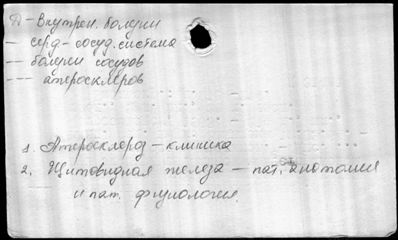 Д - Внутрен. болезни
— серд-сосуд. система
-- болезни сосудов
--- атеросклероз
1. Атеросклероз - клиника
2. Щитовидная железа - пат. анатомия
и пат. физиология.